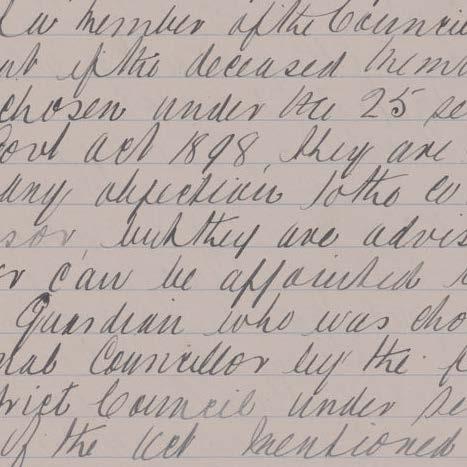 a member of the Council
but if the deceased mem
chosen under the 25 se
Govt Act 1898, they are
any objection to the co
sor, but they are advis
er can be appointed
Guardian who was cho
nal Councillor by the
trict Council under se
of the Act mentioned